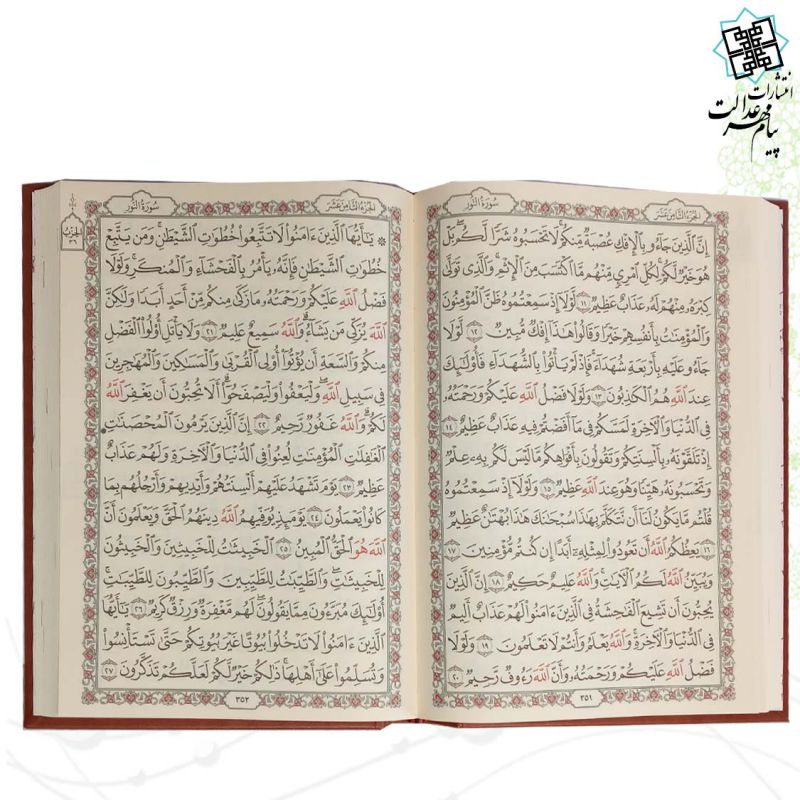 انتشارات
پیام مهر عدالت
الجزء الثامن عشر
سورة النور
إِنَّ ٱلَّذِينَ جَآءُو بِٱلْإِفْكِ عُصْبَةٌ مِّنكُمْ لَا تَحْسَبُوهُ شَرًّا لَّكُم بَلْ
هُوَ خَيْرٌ لَّكُمْ لِكُلِّ ٱمْرِئٍ مِّنْهُم مَّا ٱكْتَسَبَ مِنَ ٱلْإِثْمِ وَٱلَّذِى تَوَلَّىٰ
كِبْرَهُۥ مِنْهُمْ لَهُۥ عَذَابٌ عَظِيمٌ ١١ لَّوْلَآ إِذْ سَمِعْتُمُوهُ ظَنَّ ٱلْمُؤْمِنُونَ
وَٱلْمُؤْمِنَٰتُ بِأَنفُسِهِمْ خَيْرًا وَقَالُوا۟ هَٰذَآ إِفْكٌ مُّبِينٌ ١٢ لَّوْلَا
جَآءُو عَلَيْهِ بِأَرْبَعَةِ شُهَدَآءَ فَإِذْ لَمْ يَأْتُوا۟ بِٱلشُّهَدَآءِ فَأُو۟لَٰٓئِكَ
عِندَ ٱللَّهِ هُمُ ٱلْكَٰذِبُونَ ١٣ وَلَوْلَا فَضْلُ ٱللَّهِ عَلَيْكُمْ وَرَحْمَتُهُۥ
فِى ٱلدُّنْيَا وَٱلْءَاخِرَةِ لَمَسَّكُمْ فِى مَآ أَفَضْتُمْ فِيهِ عَذَابٌ عَظِيمٌ ١٤
إِذْ تَلَقَّوْنَهُۥ بِأَلْسِنَتِكُمْ وَتَقُولُونَ بِأَفْوَاهِكُم مَّا لَيْسَ لَكُم بِهِۦ عِلْمٌ
وَتَحْسَبُونَهُۥ هَيِّنًا وَهُوَ عِندَ ٱللَّهِ عَظِيمٌ ١٥ وَلَوْلَآ إِذْ سَمِعْتُمُوهُ
قُلْتُم مَّا يَكُونُ لَنَآ أَن نَّتَكَلَّمَ بِهَٰذَا سُبْحَٰنَكَ هَٰذَا بُهْتَٰنٌ عَظِيمٌ
١٦ يَعِظُكُمُ ٱللَّهُ أَن تَعُودُوا۟ لِمِثْلِهِۦٓ أَبَدًا إِن كُنتُم مُّؤْمِنِينَ ١٧
وَيُبَيِّنُ ٱللَّهُ لَكُمُ ٱلْءَايَٰتِ وَٱللَّهُ عَلِيمٌ حَكِيمٌ ١٨ إِنَّ ٱلَّذِينَ
يُحِبُّونَ أَن تَشِيعَ ٱلْفَٰحِشَةُ فِى ٱلَّذِينَ ءَامَنُوا۟ لَهُمْ عَذَابٌ أَلِيمٌ
فِى ٱلدُّنْيَا وَٱلْءَاخِرَةِ وَٱللَّهُ يَعْلَمُ وَأَنتُمْ لَا تَعْلَمُونَ ١٩ وَلَوْلَا
فَضْلُ ٱللَّهِ عَلَيْكُمْ وَرَحْمَتُهُۥ وَأَنَّ ٱللَّهَ رَءُوفٌ رَّحِيمٌ ٢٠
٣٥١
سورة النور
الجزء الثامن عشر
الحزب
٣٦
۞ يَٰٓأَيُّهَا ٱلَّذِينَ ءَامَنُوا۟ لَا تَتَّبِعُوا۟ خُطُوَٰتِ ٱلشَّيْطَٰنِ وَمَن يَتَّبِعْ
خُطُوَٰتِ ٱلشَّيْطَٰنِ فَإِنَّهُۥ يَأْمُرُ بِٱلْفَحْشَآءِ وَٱلْمُنكَرِ وَلَوْلَا
فَضْلُ ٱللَّهِ عَلَيْكُمْ وَرَحْمَتُهُۥ مَا زَكَىٰ مِنكُم مِّنْ أَحَدٍ أَبَدًا وَلَٰكِنَّ
ٱللَّهَ يُزَكِّى مَن يَشَآءُ وَٱللَّهُ سَمِيعٌ عَلِيمٌ ٢١ وَلَا يَأْتَلِ أُو۟لُوا۟ ٱلْفَضْلِ
مِنكُمْ وَٱلسَّعَةِ أَن يُؤْتُوٓا۟ أُو۟لِى ٱلْقُرْبَىٰ وَٱلْمَسَٰكِينَ وَٱلْمُهَٰجِرِينَ
فِى سَبِيلِ ٱللَّهِ وَلْيَعْفُوا۟ وَلْيَصْفَحُوٓا۟ أَلَا تُحِبُّونَ أَن يَغْفِرَ ٱللَّهُ
لَكُمْ وَٱللَّهُ غَفُورٌ رَّحِيمٌ ٢٢ إِنَّ ٱلَّذِينَ يَرْمُونَ ٱلْمُحْصَنَٰتِ
ٱلْغَٰفِلَٰتِ ٱلْمُؤْمِنَٰتِ لُعِنُوا۟ فِى ٱلدُّنْيَا وَٱلْءَاخِرَةِ وَلَهُمْ عَذَابٌ
عَظِيمٌ ٢٣ يَوْمَ تَشْهَدُ عَلَيْهِمْ أَلْسِنَتُهُمْ وَأَيْدِيهِمْ وَأَرْجُلُهُم بِمَا
كَانُوا۟ يَعْمَلُونَ ٢٤ يَوْمَئِذٍ يُوَفِّيهِمُ ٱللَّهُ دِينَهُمُ ٱلْحَقَّ وَيَعْلَمُونَ أَنَّ
ٱللَّهَ هُوَ ٱلْحَقُّ ٱلْمُبِينُ ٢٥ ٱلْخَبِيثَٰتُ لِلْخَبِيثِينَ وَٱلْخَبِيثُونَ
لِلْخَبِيثَٰتِ وَٱلطَّيِّبَٰتُ لِلطَّيِّبِينَ وَٱلطَّيِّبُونَ لِلطَّيِّبَٰتِ
أُو۟لَٰٓئِكَ مُبَرَّءُونَ مِمَّا يَقُولُونَ لَهُم مَّغْفِرَةٌ وَرِزْقٌ كَرِيمٌ ٢٦ يَٰٓأَيُّهَا
ٱلَّذِينَ ءَامَنُوا۟ لَا تَدْخُلُوا۟ بُيُوتًا غَيْرَ بُيُوتِكُمْ حَتَّىٰ تَسْتَأْنِسُوا۟
وَتُسَلِّمُوا۟ عَلَىٰٓ أَهْلِهَا ذَٰلِكُمْ خَيْرٌ لَّكُمْ لَعَلَّكُمْ تَذَكَّرُونَ ٢٧
٣٥٢